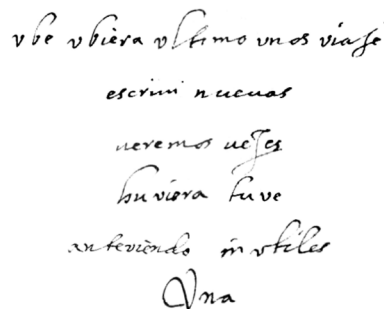 vbe vbiera vltimo vnos viaje
escrivi nuevas
veremos vezes
huviera tuve
anteviendo invtiles
Vna